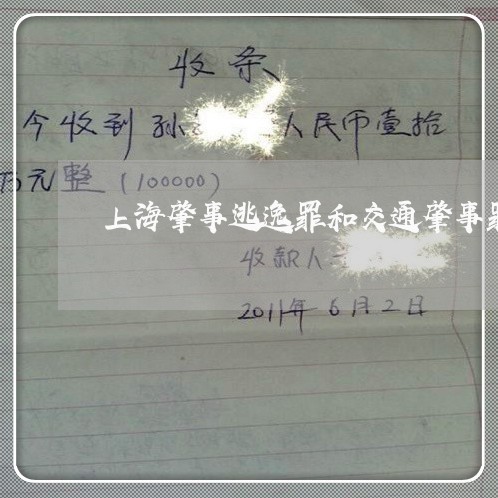 收条
今收到孙 人民币壹拾
万元整(100000)
上海肇事逃逸罪和交通肇事罪
收款人
2011年6月2日